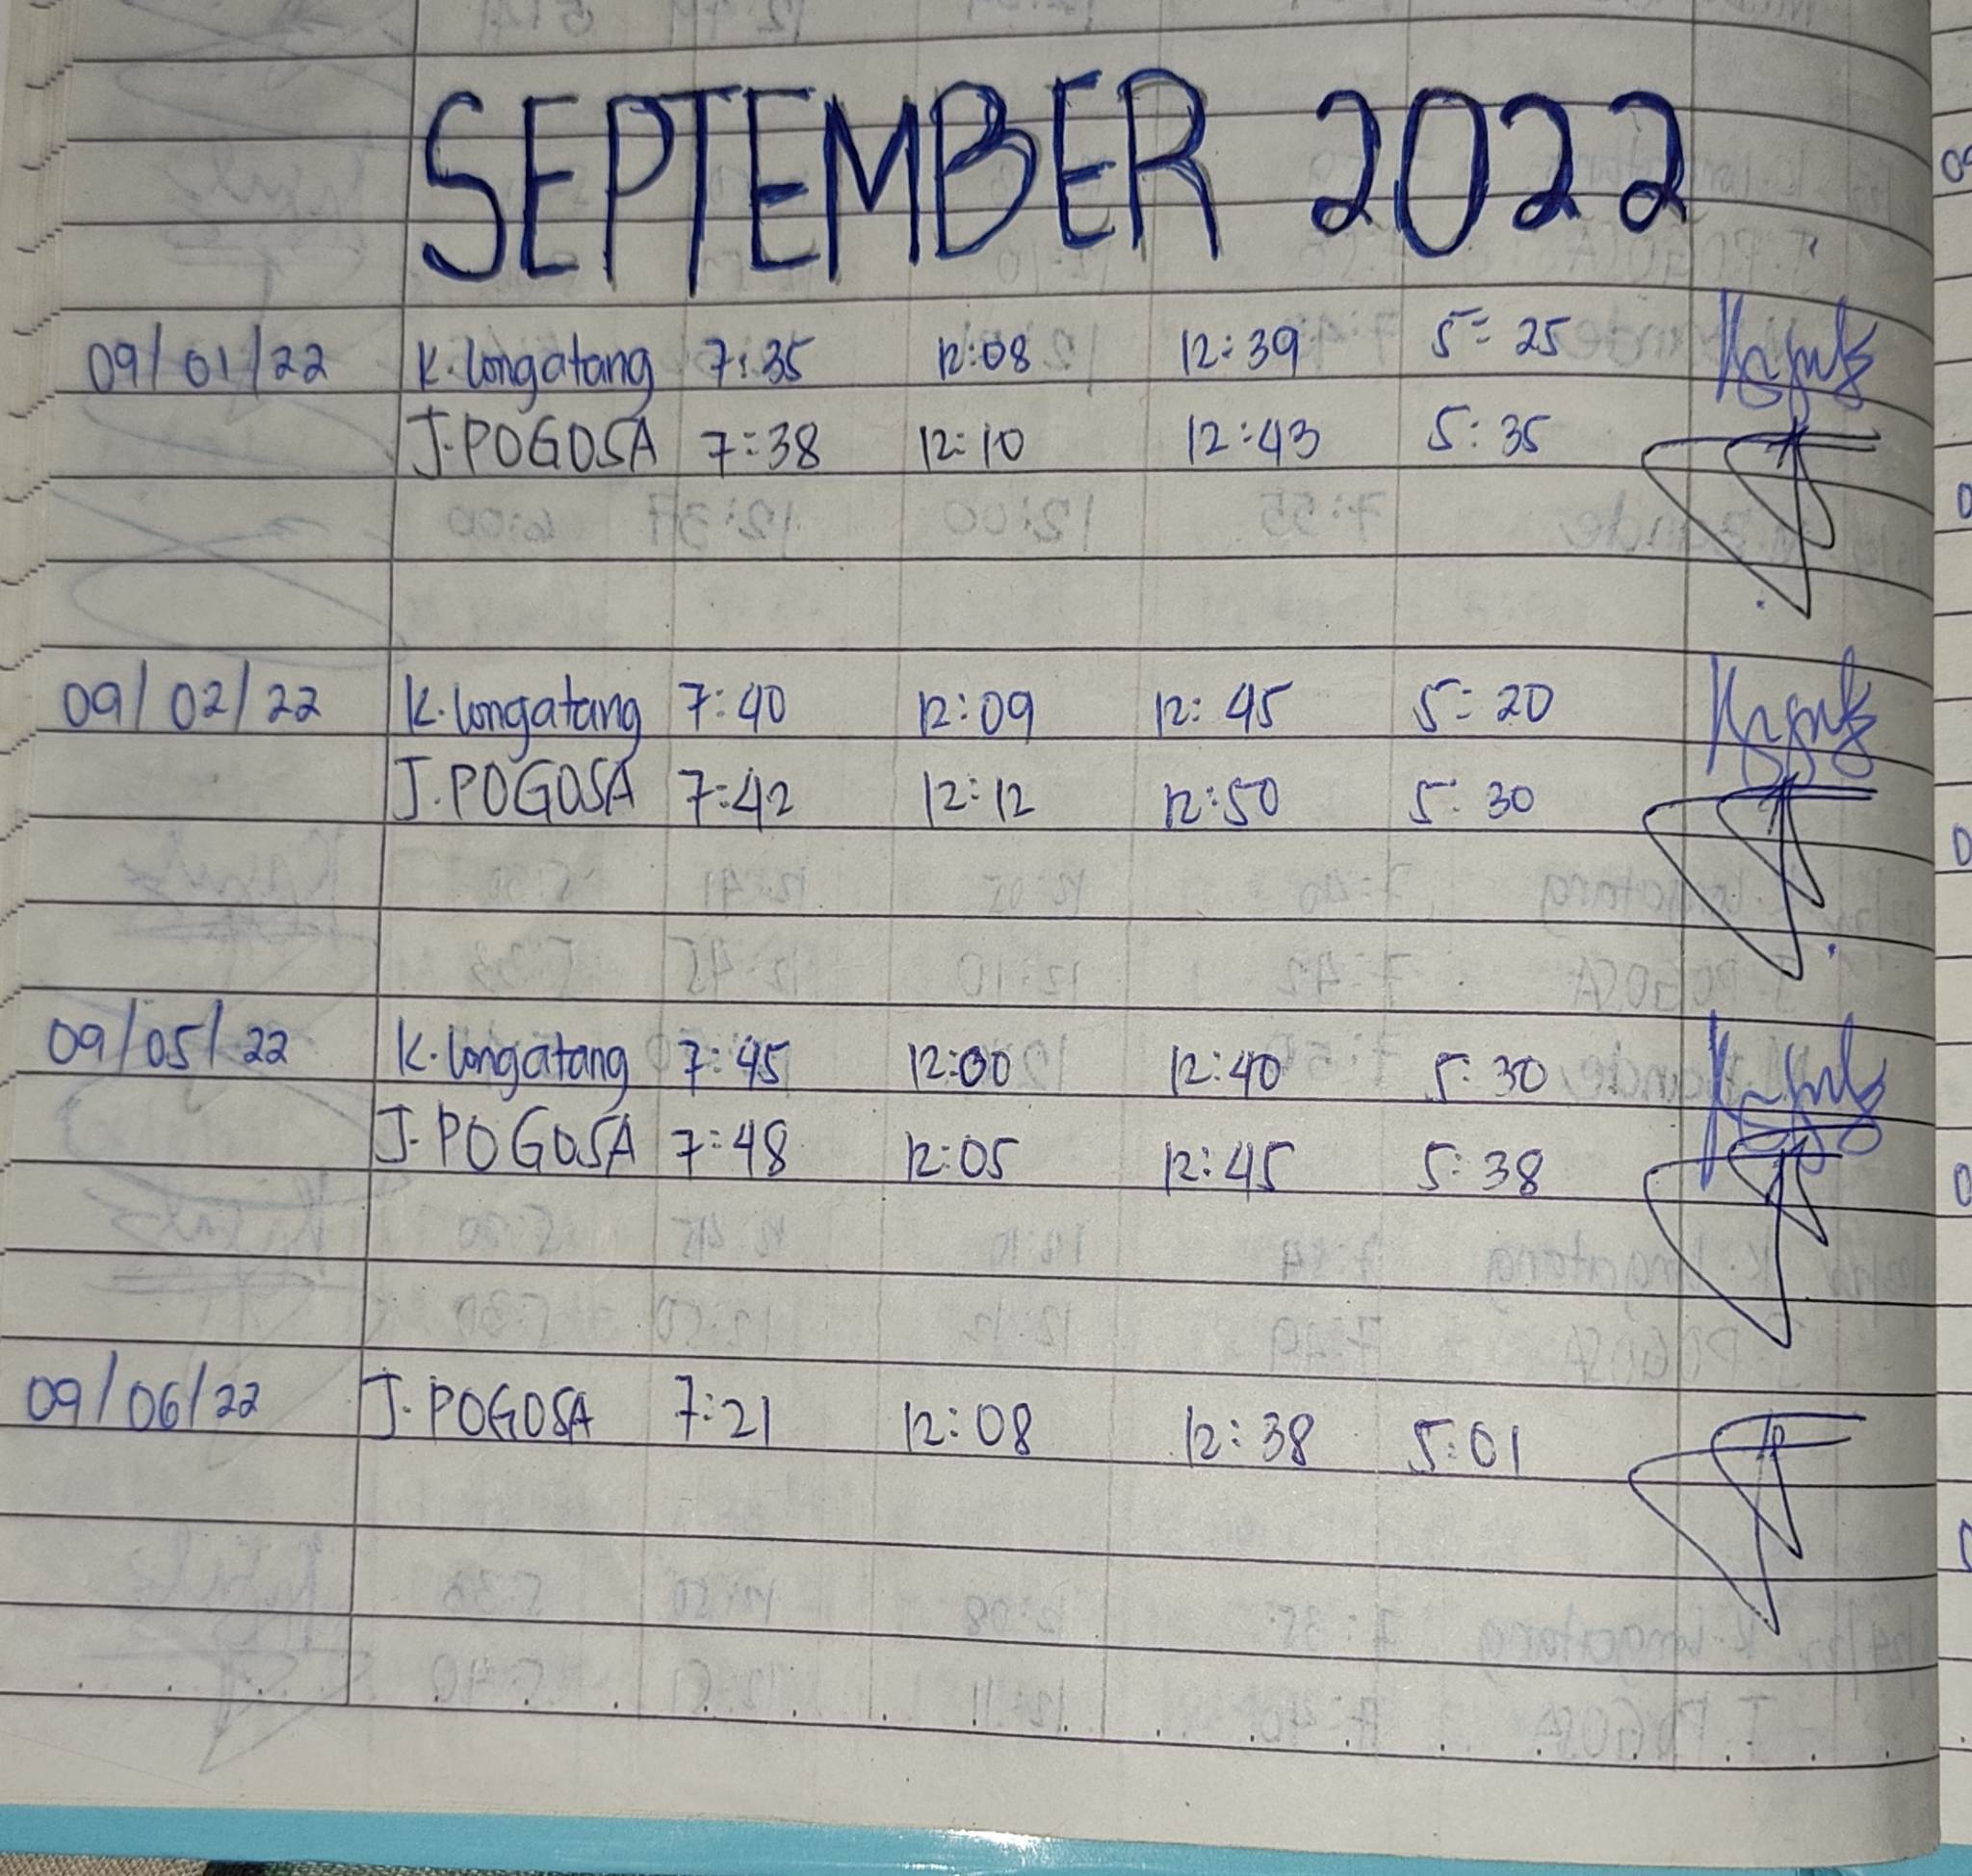 SEPTEMBER 2022
09/01/22 K. Longatang 7:35 12:08 12:39 5:25
J. POGOSA 7:38 12:10 12:43 5:35
09/02/22 K. Longatang 7:40 12:09 12:45 5:20
J. POGOSA 7:42 12:12 12:50 5:30
09/05/22 K. Longatang 7:45 12:00 12:40 5:30
J. POGOSA 7:48 12:05 12:45 5:38
09/06/22 J. POGOSA 7:21 12:08 12:38 5:01